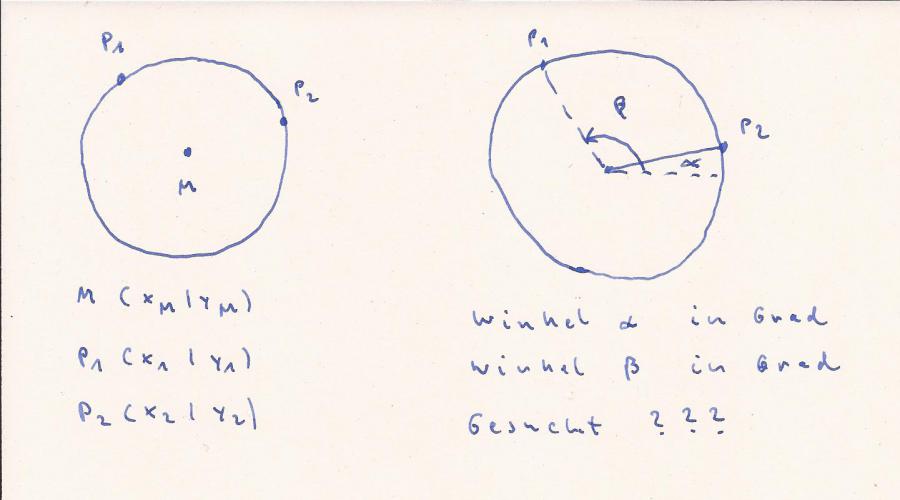 P₁
P₂
M
M (x_M | y_M)
P₁ (x₁ | y₁)
P₂ (x₂ | y₂)
P₁
β
P₂
α
Winkel α in Grad
Winkel β in Grad
Gesucht ???